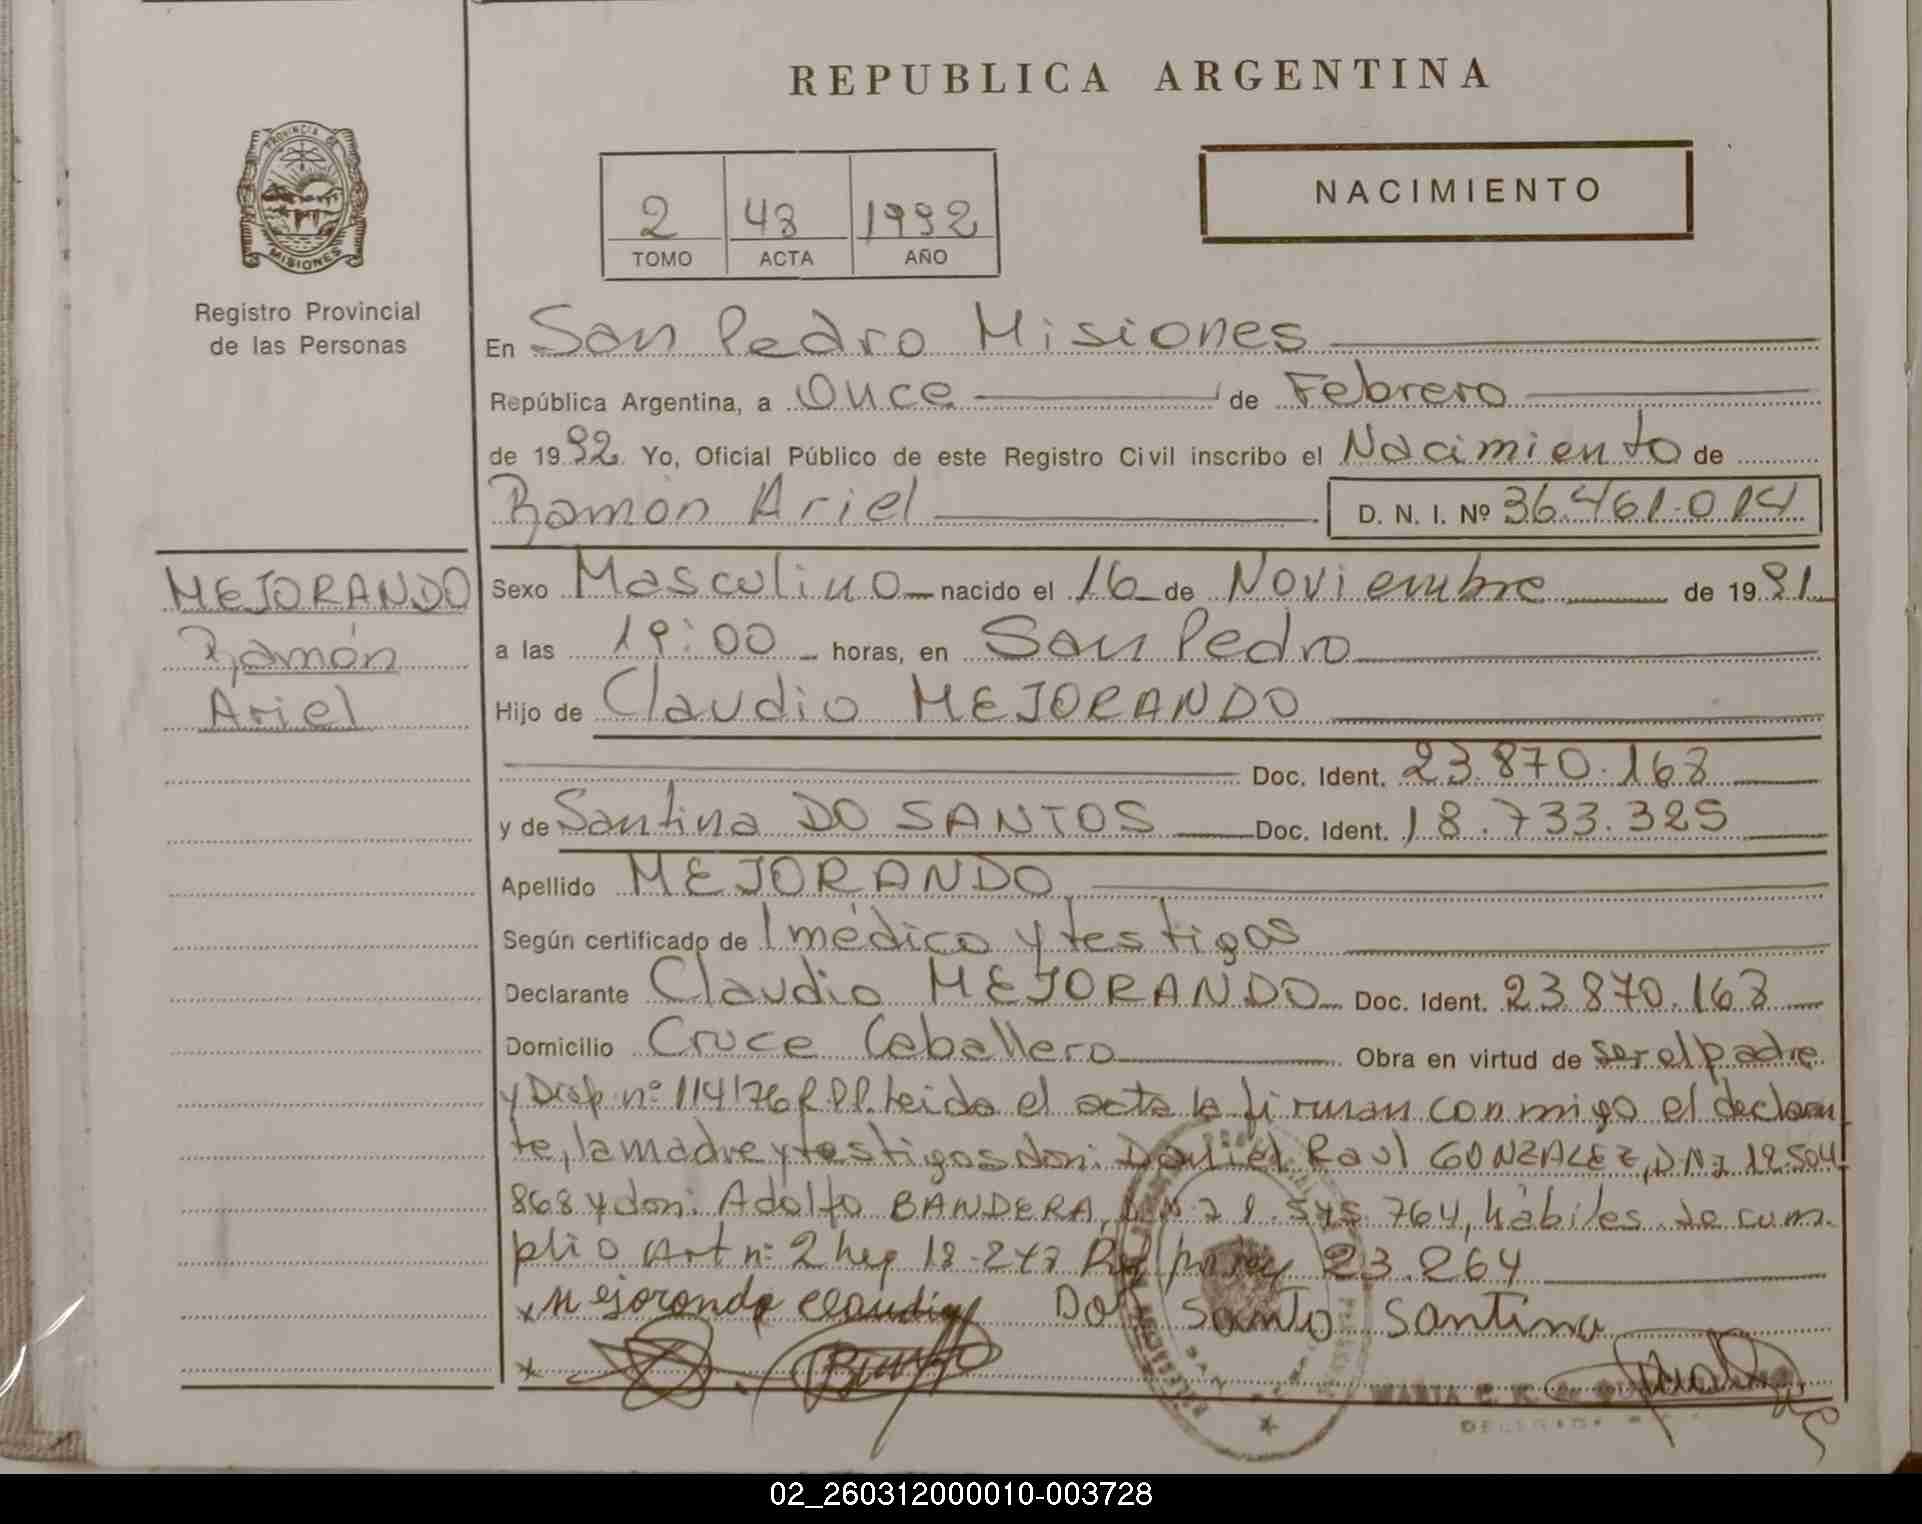 REPUBLICA ARGENTINA
PROVINCIA DE
MISIONES
NACIMIENTO
2 43 1992
TOMO ACTA AÑO
Registro Provincial
de las Personas
En San Pedro Misiones
República Argentina, a Once de Febrero
de 1992 Yo, Oficial Público de este Registro Civil inscribo el Nacimiento de
Ramón Ariel D. N. I. Nº 36.461.014
MEJORANDO
Ramón
Ariel
Sexo Masculino nacido el 16 de Noviembre de 1991
a las 19:00 horas, en San Pedro
Hijo de Claudio MEJORANDO
Doc. Ident. 23.870.163
y de Santina DO SANTOS Doc. Ident. 18.733.325
Apellido MEJORANDO
Según certificado de 1 médico y testigos
Declarante Claudio MEJORANDO Doc. Ident. 23.870.163
Domicilio Cruce Caballero Obra en virtud de ser el padre
y Disp. nº 114/76 R.P.P. Leida el acta la firman conmigo el declaran
te, la madre y testigos don: Daniel Raul GONZALEZ, DNI 12.504
868 y don: Adolfo BANDERA, 764, hábiles. Se cum-
plio Art nº 2 Ley 18.248 23.264
x Mejorando Claudio Do Santo Santina
x
MARIA C.
DELEGADA
02_260312000010-003728